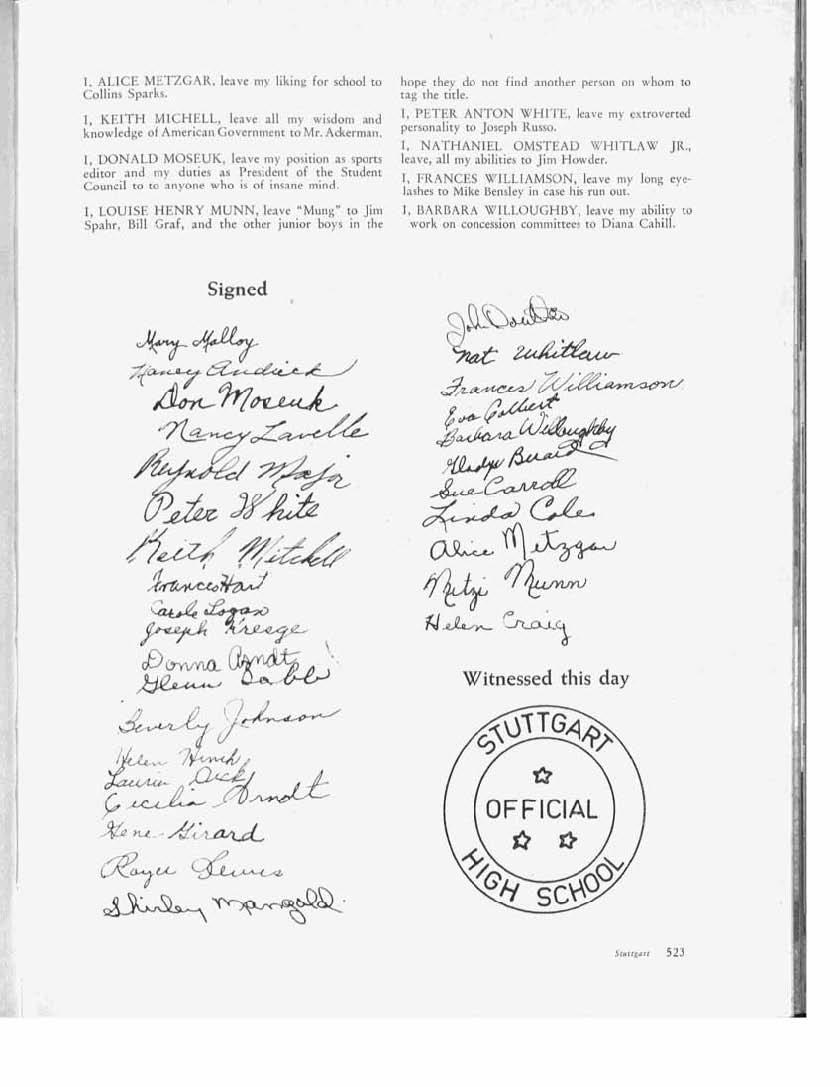 I, ALICE METZGAR, leave my liking for school to
Collins Sparks.
I, KEITH MICHELL, leave all my wisdom and
knowledge of American Government to Mr. Ackerman.
I, DONALD MOSEUK, leave my position as sports
editor and my duties as President of the Student
Council to to anyone who is of insane mind.
I, LOUISE HENRY MUNN, leave "Mung" to Jim
Spahr, Bill Graf, and the other junior boys in the
hope they do not find another person on whom to
tag the title.
I, PETER ANTON WHITE, leave my extroverted
personality to Joseph Russo.
I, NATHANIEL OMSTEAD WHITLAW JR.,
leave, all my abilities to Jim Howder.
I, FRANCES WILLIAMSON, leave my long eye-
lashes to Mike Bensley in case his run out.
I, BARBARA WILLOUGHBY, leave my ability to
work on concession committees to Diana Cahill.
Signed
Mary Malloy
Nancy Andick
Don Moseuk
Nancy Lavelle
Reynold Major
Peter White
Keith Mitchell
Frances Hart
Carole Logan
Joseph Kresge
Donna Arndt
Glenn Babb
Beverly Johnson
Helen Hinch
Laurin Dick
Cecilia Arndt
Gene Girard
Roger Lewis
Shirley Mangold
John
Nat Whitlaw
Frances Williamson
Eva Colbert
Barbara Willoughby
Gladys Berard
Sue Carroll
Linda Cole
Alice Metzgar
Mitzi Munn
Helen Craig
Witnessed this day
STUTTGART
OFFICIAL
HIGH SCHOOL
Stuttgart 523